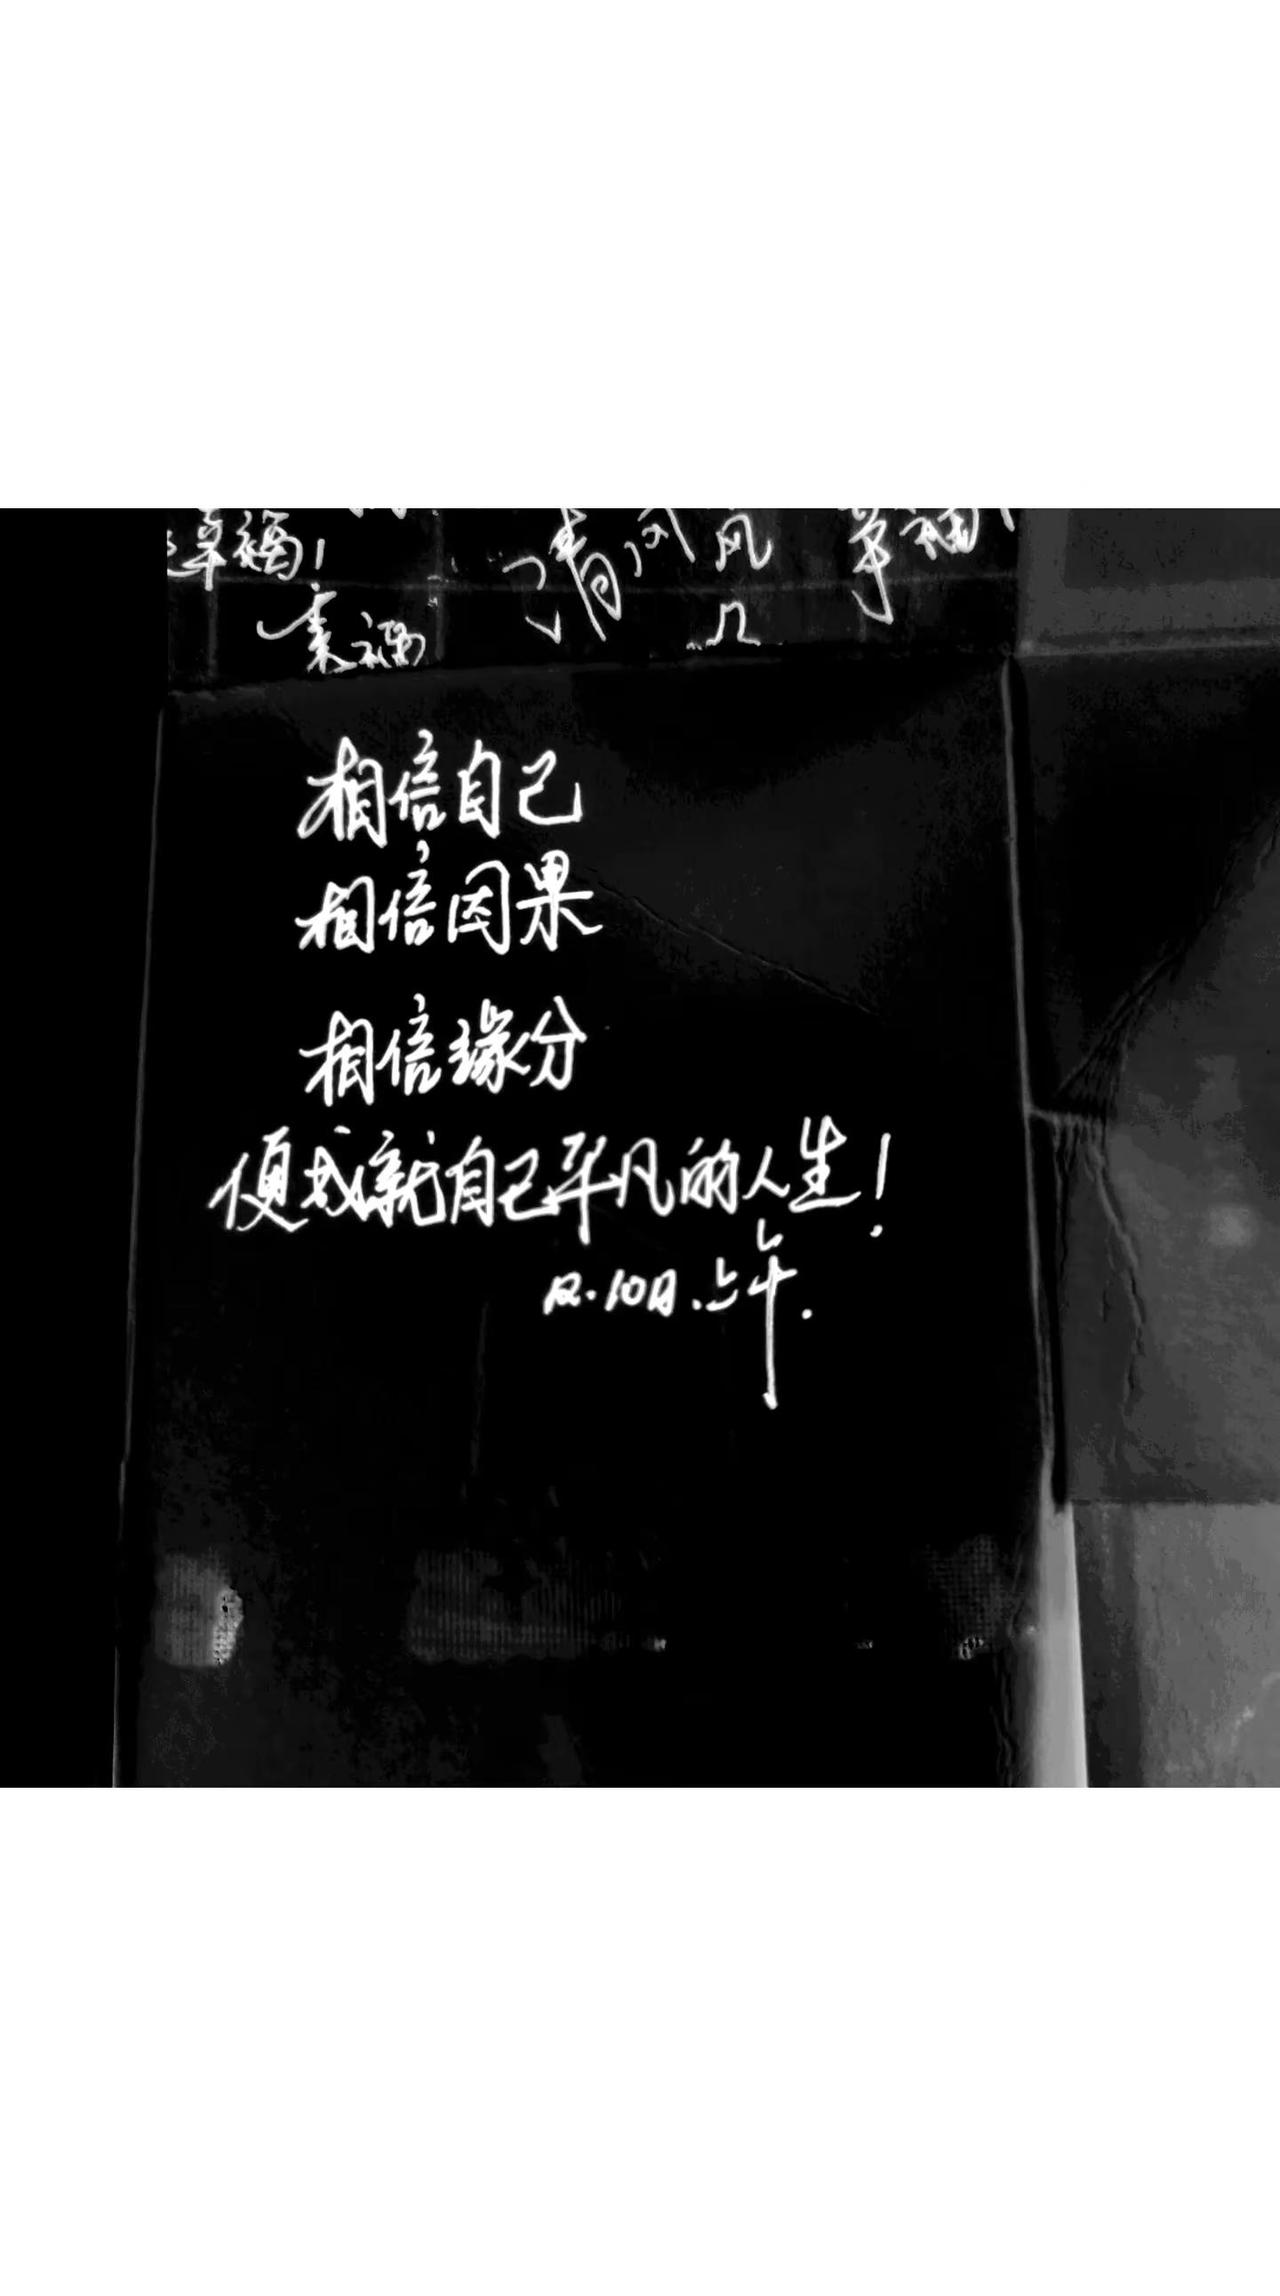 幸福!
清风
幸福!
相信自己
相信因果
相信缘分
便成就自己平凡的人生!
12.10日.上午.